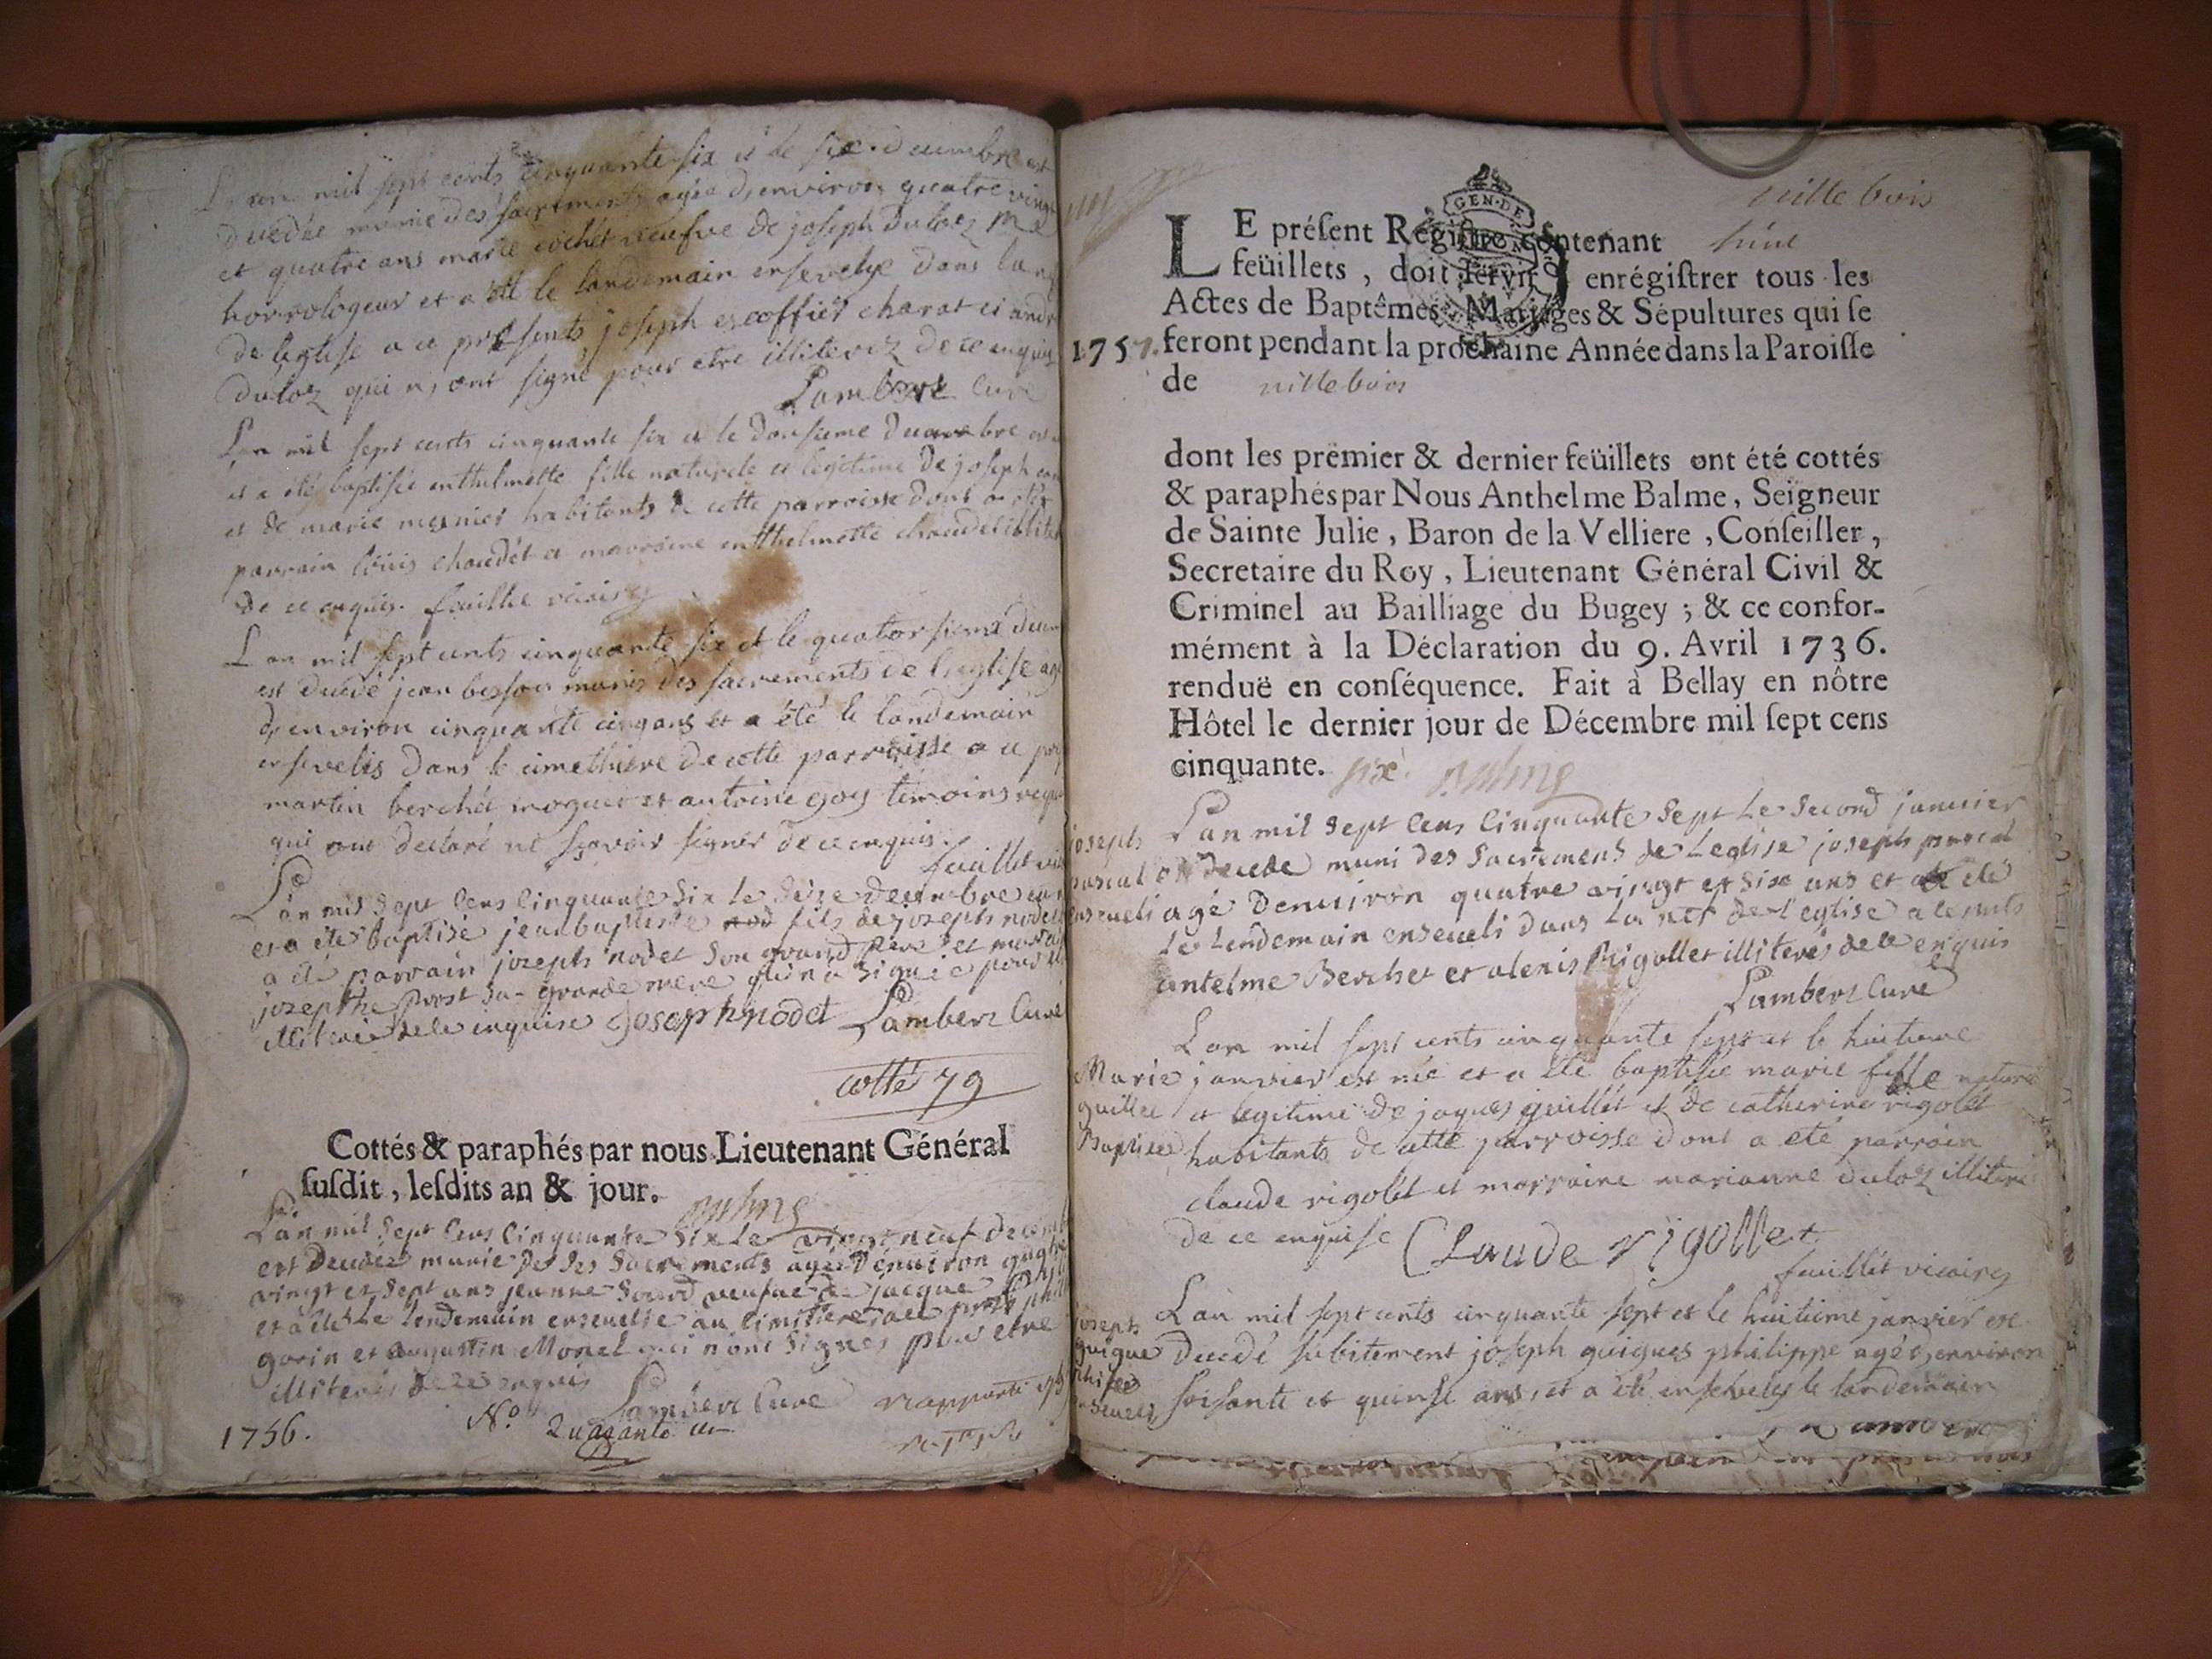 L'an mil sept cents cinquante six et le six decembre est
decedée munie des sacrements agée d'environ quatre vingt
et quatre ans marie cochet veufve de joseph duloz me
horrologeur et a été le landemain ensevelye dans la nef
de leglise a ce présents joseph escoffier charat et andré
duloz qui n'ont signé pour etre illiterez de ce enquis
Lambert Curé
L'an mil sept cents cinquante six et le dousieme decembre est
et a été baptisée enthelmette fille naturele et legitime de joseph
et de marie mesnier habitants de cette parroisse dont a été
parrain louis chaudet et marraine entthelmette chaudet illiter
de ce enquis. feuillet vicaire
L'an mil sept cents cinquante six et le quatorsieme decem
est decedé jean besson munis des sacrements de l'eglise agé
d'environ cinquante cinq ans et a été le landemain
ensevelis dans le cimethiere de cette parroisse a ce pre
martin berchet moguet et antoine goy temoins requis
qui ont declaré ne sçavoir signer de ce enquis.
feuillet vic
L'an mil sept cens cinquante six le seize decembre est
et a été baptisé jean baptiste nod fils de joseph nodet
a été parrain joseph nodet son grand pere et marra
josephte prost sa grande mere qui n'a signée pour
illiterée de ce enquise Joseph nodet Lambert Curé
cotté 79
Cottés & paraphés par nous Lieutenant Général
susdit, lesdits an & jour.
Balme
L'an mil sept cens cinquante six le vingt neuf decemb
est decedée munie de ses sacrements agée d'environ quatre
vingt et sept ans jeanne sourd veufve de jacque
et a été le lendemain ensevelie au cimitiere a ce prets
gorin et augustin Monet qui n'ont signés pour etre
illiterés de ce enquis
Lambert Curé rapporté
1756. No. Quarante un
ville bois
LE présent Registre contenant huit
feüillets, doit servir à enrégistrer tous les
Actes de Baptêmes, Mariages & Sépultures qui se
1757. feront pendant la prochaine Année dans la Paroisse
de villebois
dont les prémier & dernier feüillets ont été cottés
& paraphés par Nous Anthelme Balme, Seigneur
de Sainte Julie, Baron de la Velliere, Conseiller,
Secretaire du Roy, Lieutenant Général Civil &
Criminel au Bailliage du Bugey; & ce confor-
mément à la Déclaration du 9. Avril 1736.
renduë en conséquence. Fait à Bellay en nôtre
Hôtel le dernier jour de Décembre mil sept cens
cinquante. six. Balme
joseph
pascal
enseveli
L'an mil sept cens cinquante sept le second janvier
est decede muni des sacremens de Leglise joseph pascal
agé denviron quatre vingt et six ans et a été
le lendemain enseveli dans la nef de l'eglise a ce prets
antelme Berchet et alexis Rigollet illiterés de ce enquis
Lambert Curé
Marie
guillet
Baptisée
L'an mil sept cents cinquante sept et le huitieme
janvier est née et a été baptisée marie fille nature
et legitime de jaques guillet et de catherine rigolet
habitants de cette parroisse dont a eté parrain
claude rigolet et marraine marianne duloz illitere
de ce enquise Claude rigollet
feuillet vicaire
joseph
guigue
philippe
enseveli
L'an mil sept cents cinquante sept et le huitieme janvier est
decedé subitement joseph guigues philippe agé d'environ
soisante et quinse ans, et a été ensevely le landemain